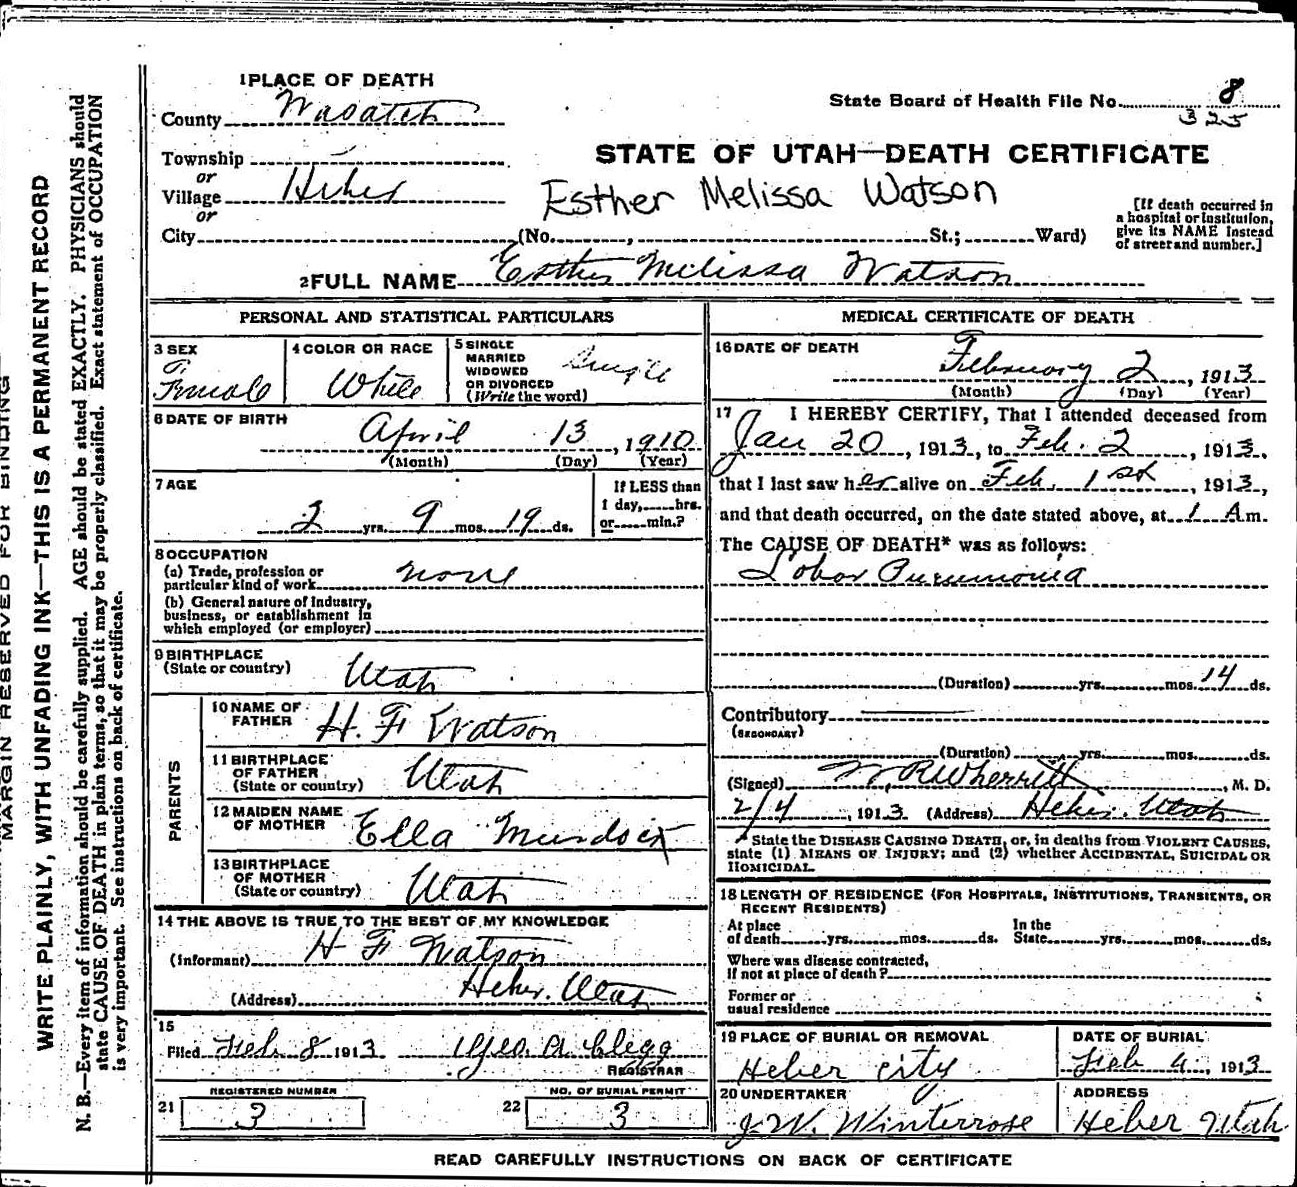 1 PLACE OF DEATH
County Wasatch
State Board of Health File No. 8
325
Township
or
Village Heber
or
City (No. , St.; Ward)
STATE OF UTAH—DEATH CERTIFICATE
Esther Melissa Watson
[If death occurred in
a hospital or institution,
give its NAME instead
of street and number.]
2 FULL NAME Esther Melissa Watson
PERSONAL AND STATISTICAL PARTICULARS
3 SEX
Female
4 COLOR OR RACE
White
5 SINGLE
MARRIED
WIDOWED
OR DIVORCED
(Write the word)
Single
6 DATE OF BIRTH
April 13, 1910
(Month) (Day) (Year)
7 AGE
2 yrs. 9 mos. 19 ds.
If LESS than
1 day, hrs.
or min.?
8 OCCUPATION
(a) Trade, profession or
particular kind of work none
(b) General nature of Industry,
business, or establishment in
which employed (or employer)
9 BIRTHPLACE
(State or country) Utah
PARENTS
10 NAME OF
FATHER H. F Watson
11 BIRTHPLACE
OF FATHER
(State or country) Utah
12 MAIDEN NAME
OF MOTHER Ella Murdock
13 BIRTHPLACE
OF MOTHER
(State or country) Utah
14 THE ABOVE IS TRUE TO THE BEST OF MY KNOWLEDGE
(Informant) H F Watson
(Address) Heber. Utah
15
Filed Feb 8 1913 Geo. A Clegg
REGISTRAR
REGISTERED NUMBER
21 3
NO. OF BURIAL PERMIT
22 3
MEDICAL CERTIFICATE OF DEATH
16 DATE OF DEATH
February 2, 1913
(Month) (Day) (Year)
17 I HEREBY CERTIFY, That I attended deceased from
Jan 20, 1913, to Feb. 2, 1913,
that I last saw her alive on Feb. 1st, 1913,
and that death occurred, on the date stated above, at 1 A m.
The CAUSE OF DEATH* was as follows:
Lobar Pneumonia
(Duration) yrs. mos. 14 ds.
Contributory
(SECONDARY)
(Duration) yrs. mos. ds.
(Signed) W R Wherritt, M. D.
2/4, 1913 (Address) Heber. Utah
* State the DISEASE CAUSING DEATH, or, in deaths from VIOLENT CAUSES,
state (1) MEANS OF INJURY; and (2) whether ACCIDENTAL, SUICIDAL OR
HOMICIDAL.
18 LENGTH OF RESIDENCE (FOR HOSPITALS, INSTITUTIONS, TRANSIENTS, OR
RECENT RESIDENTS)
At place
of death yrs. mos. ds.
In the
State yrs. mos. ds.
Where was disease contracted,
If not at place of death?
Former or
usual residence
19 PLACE OF BURIAL OR REMOVAL
Heber City
DATE OF BURIAL
Feb 4, 1913
20 UNDERTAKER
J W. Winterrose
ADDRESS
Heber Utah
READ CAREFULLY INSTRUCTIONS ON BACK OF CERTIFICATE
MARGIN RESERVED FOR BINDING
WRITE PLAINLY, WITH UNFADING INK—THIS IS A PERMANENT RECORD
N. B.—Every item of information should be carefully supplied. AGE should be stated EXACTLY. PHYSICIANS should
state CAUSE OF DEATH in plain terms, so that it may be properly classified. Exact statement of OCCUPATION
is very important. See instructions on back of certificate.